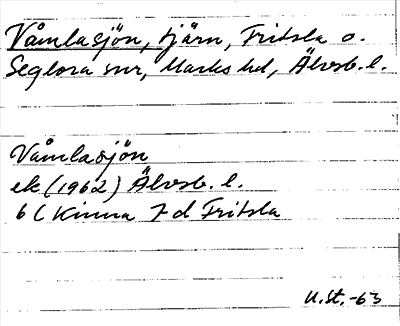 Våmlasjön, tjärn, Fritsla o.
Seglora snr, Marks hd, Älvsb. l.
Våmlasjön
ek (1962) Älvsb. l.
6 C Kinna 7 d Fritsla
U.St.-63